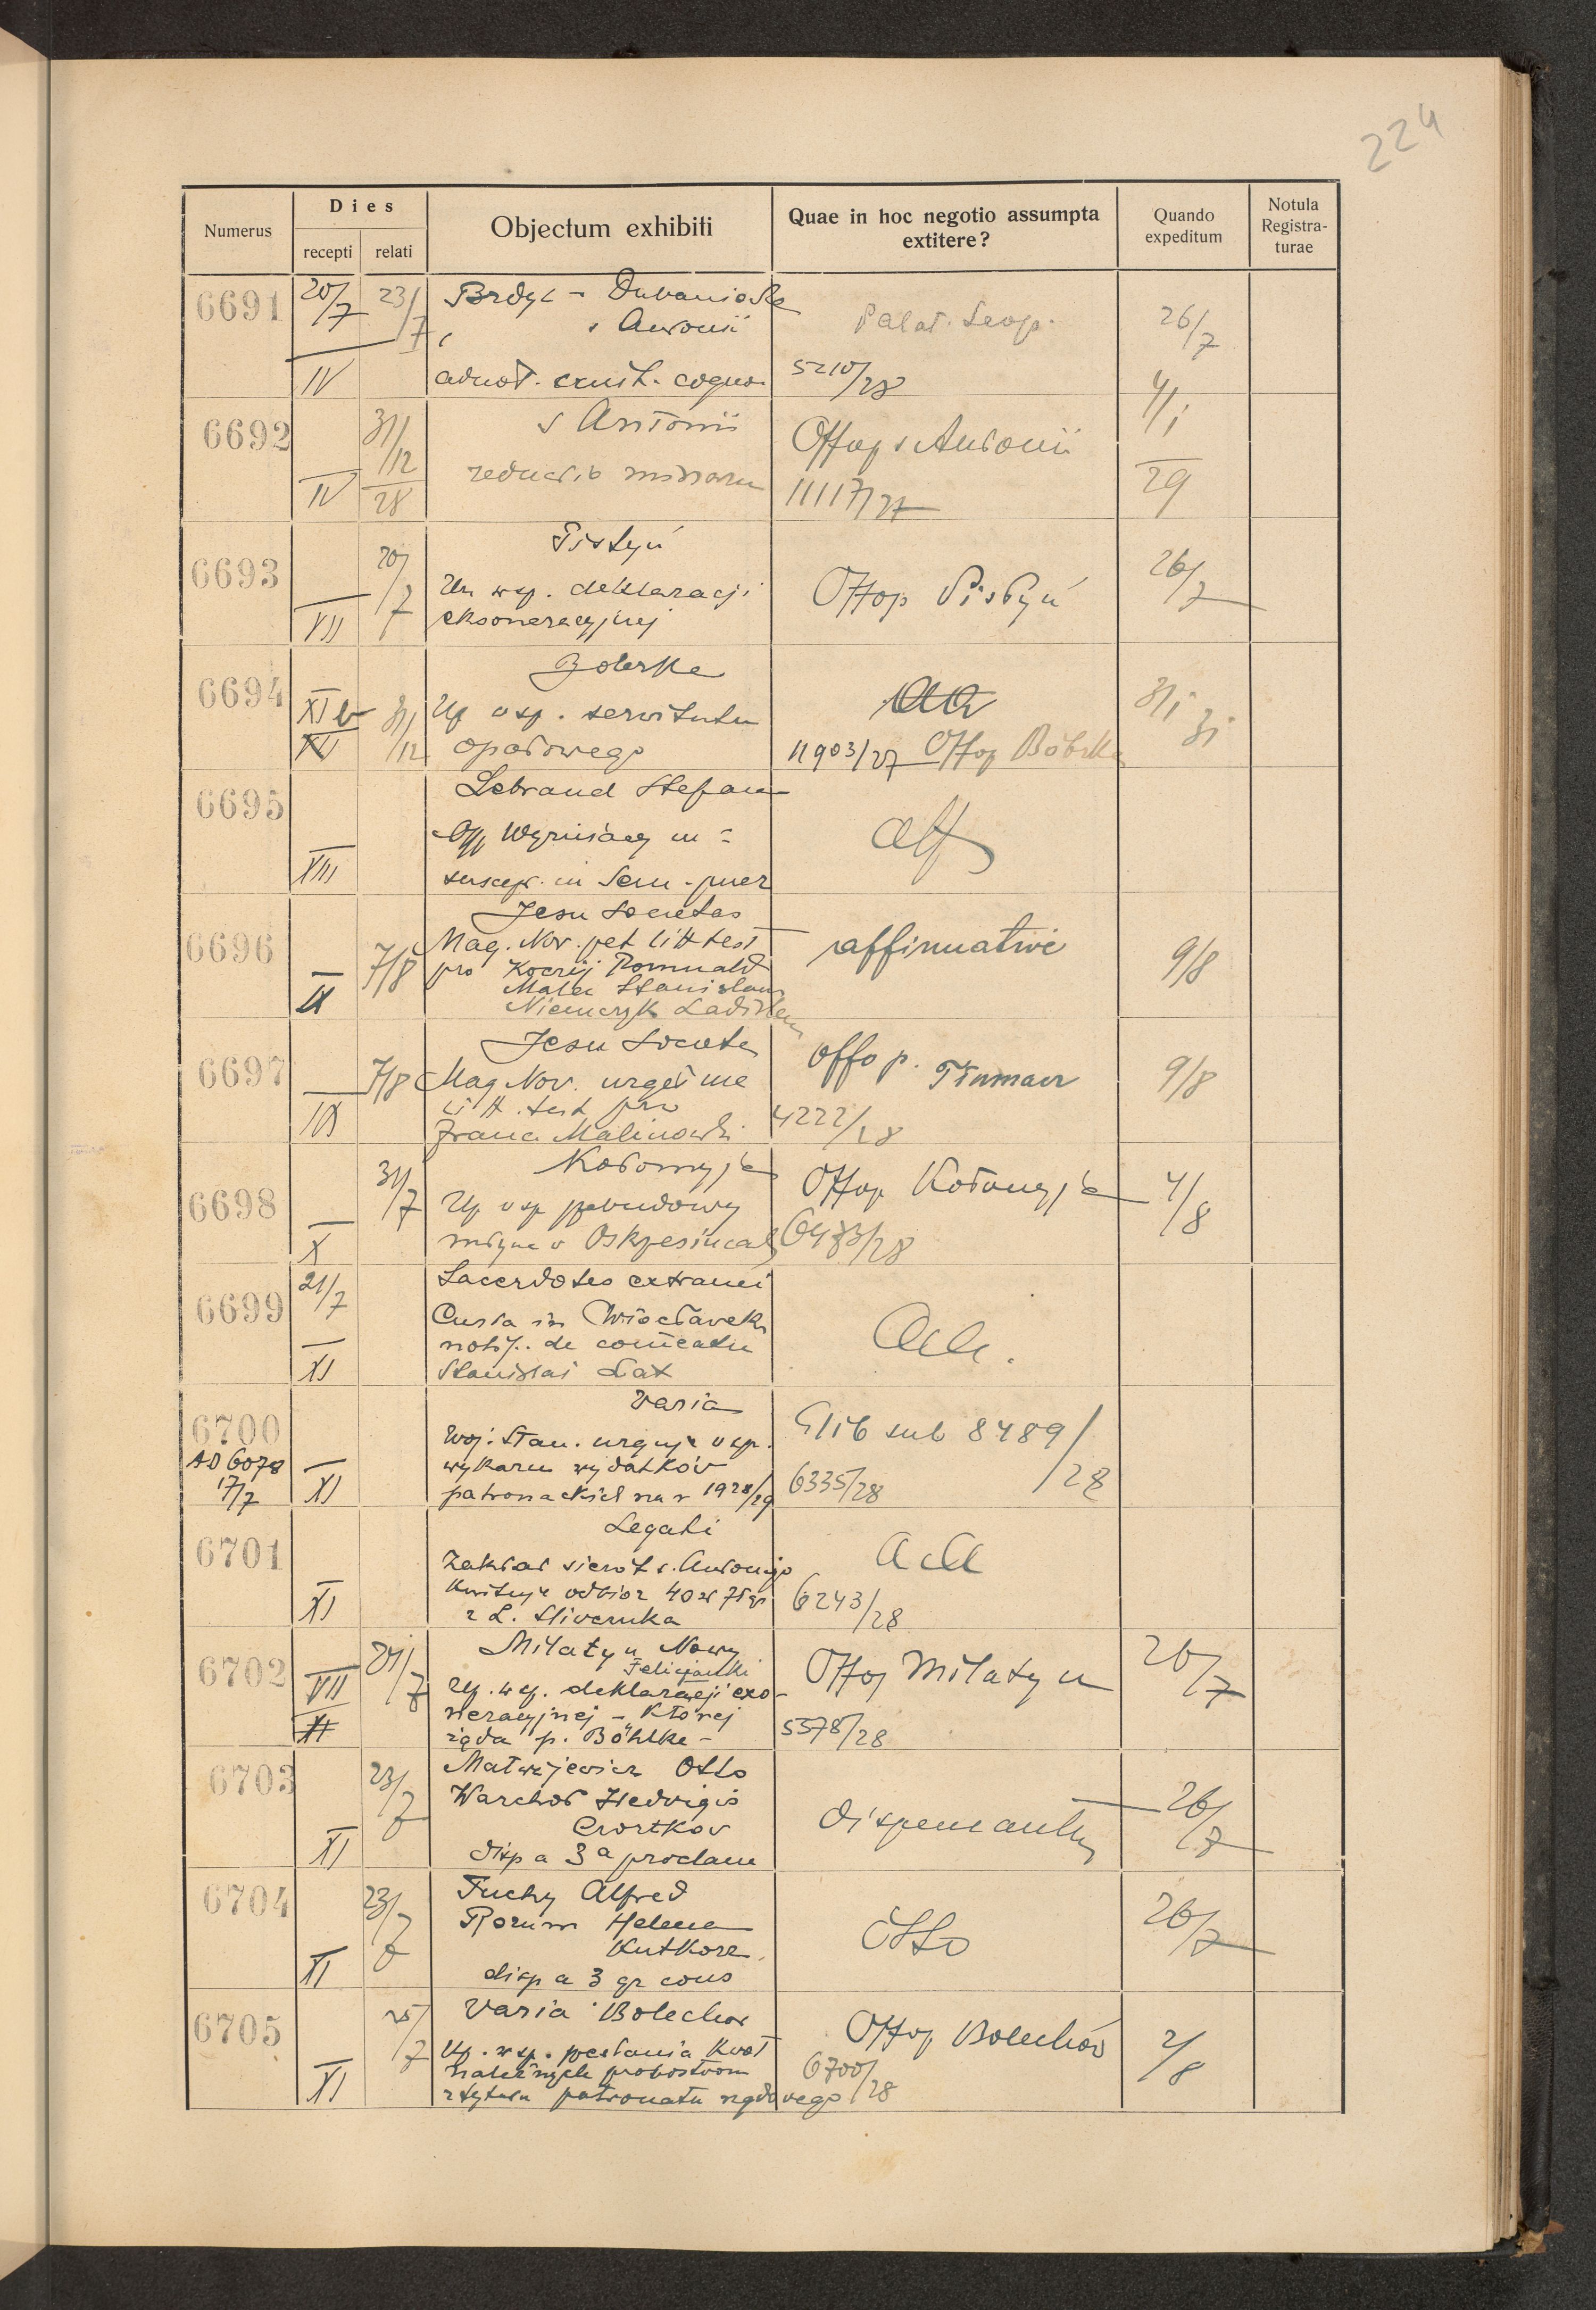 224
Numerus
Dies
recepti relati
Objectum exhibiti
Quae in hoc negotio assumpta
extitere?
Quando
expeditum
Notula
Registra-
turae
6691 20/7 23/7
s Antonii
Palat. Leop.
26/7
IV
5210/28
6692 31/12 28
s Antonii
Offop s Antonii
4/1 29
IV
reductio missarum
11117/27
6693 20/7
Pistyń
VII
Un wsp. deklaracji
eksoneracyjnej
Offop Pistyń
26/7
6694
XI b
31/12
Up wsp. serwitutu
opałowego
11903/27 Offop Bóbrka
6695
XIII
Stefan
suscep. in Sem. puer
6696
IX
7/8
Jesu Societas
Mag. Nov. pet litt test
pro Romuald
Stanislaus
Niemczyk Ladislaus
affirmative
9/8
6697
IX
7/8
Jesu Societas
Mag Nov. urget me
litt. test pro
Franc Malinowski
offop. Tłumacz
4222/28
9/8
6698
X
31/7
Kołomyja
Up wsp pobudowy
młyna w Oskrzesincach
Offop Kołomyja
4/8
6699 21/7
XI
Sacerdotes extranei
Curia in Włocławek
notif. de
Stanislai Łax
Acta.
6700
AD 6078
17/7
XI
Varia
Woj. Stan. urguje wsp.
wykazu wydatków
patronackich na r 1928/29
Glib sub 8489/28
6335/28
6701
XI
Legati
Zakład sierot s. Antoniego
kwituje odbiór 40 zł 75 gr
z L. Sliwenka
Acta
6243/28
6702
VII
21/7
Milatyn Nowy
Felicjanki
Up. wsp. deklaracji exo-
neracyjnej - której
żąda p. Böhlke -
Offop Milatyn
5578/28
26/7
6703
XI
23/7
Matwijewicz Otto
Warchoł Hedvigis
Czortkow
disp a 3a proclam
dispensantur
26/7
6704
XI
23/7
Fuchy Alfred
Rozum Helena
Kutkorz
disp a 3 gr cons
Otto
26/7
6705
XI
25/7
Varia Bolechow
Up. wsp. przesłania kwot
należnych probostwom
z tytułu patronatu rządowego
Offop Bolechów
6700/28
2/8